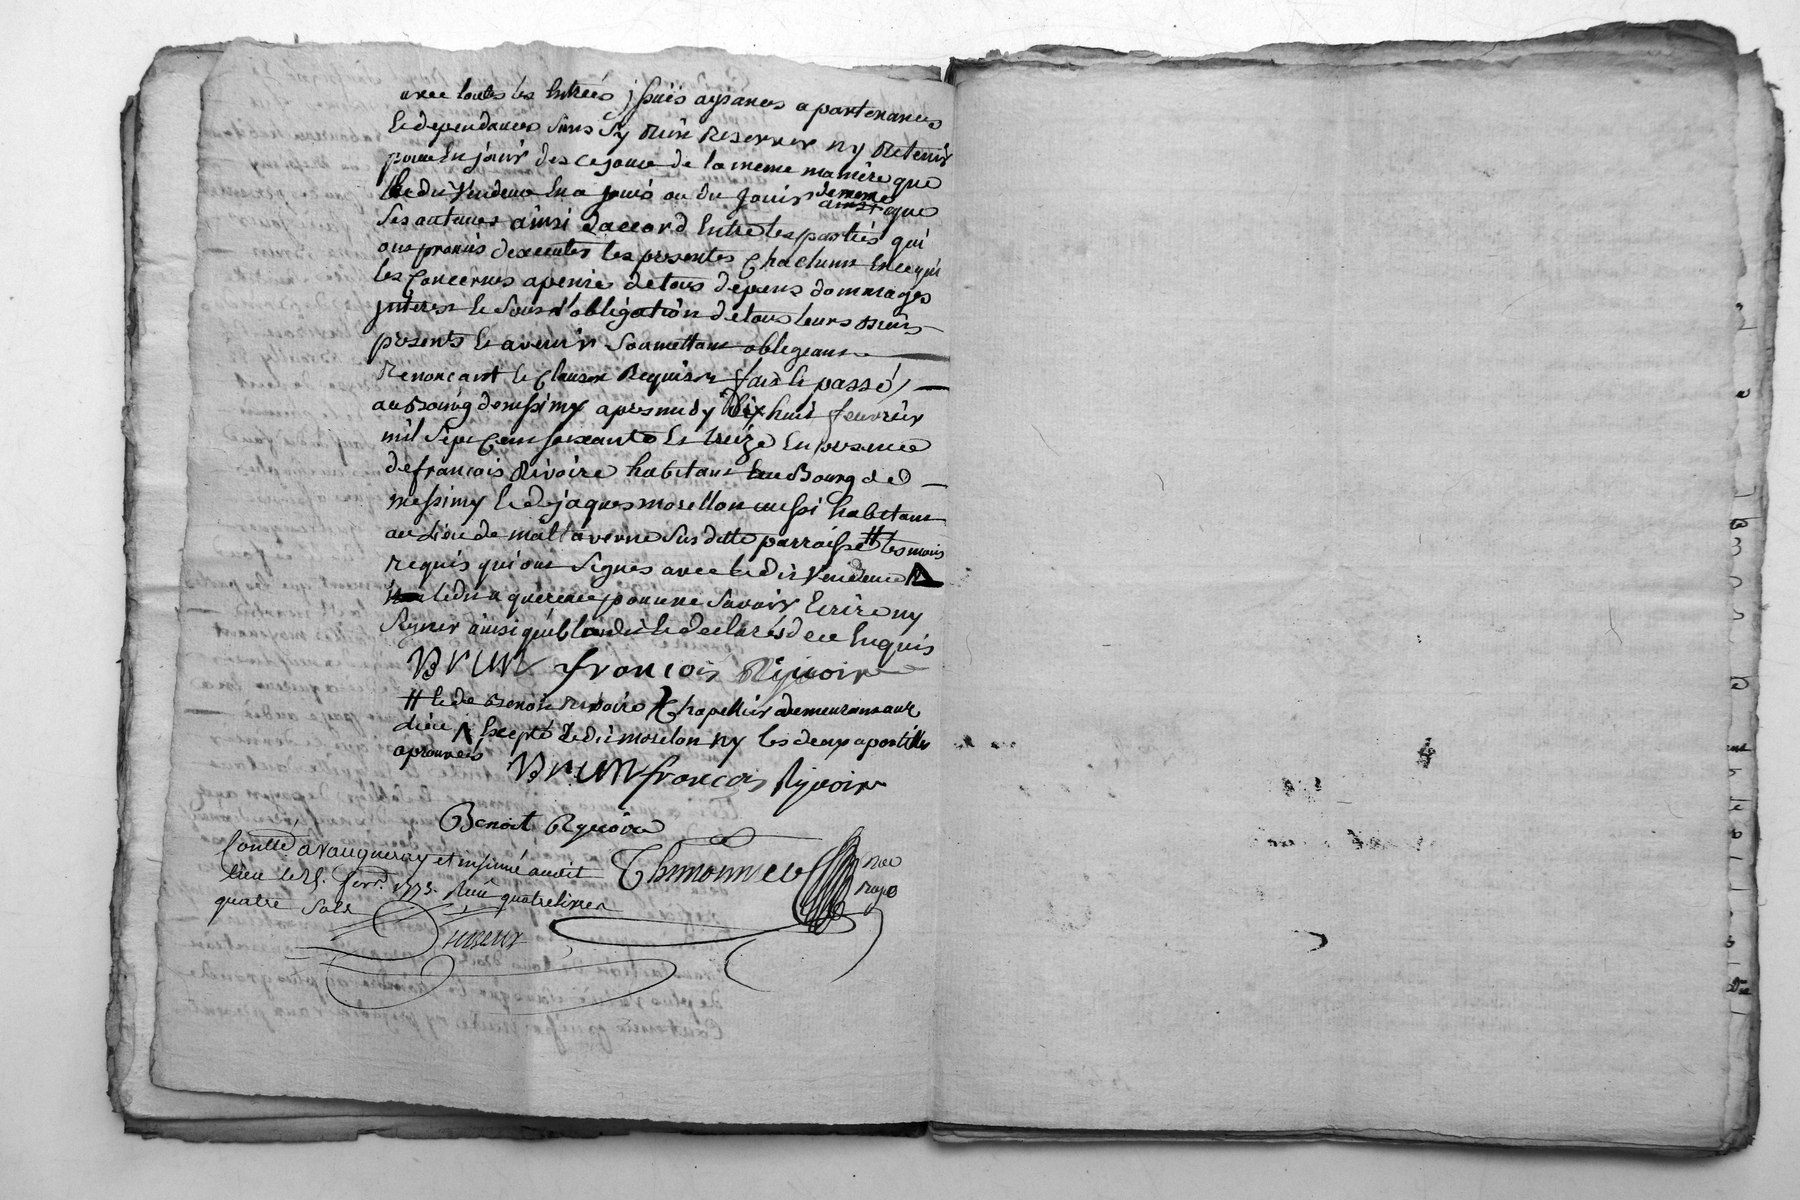 avec toutes les Entrées jssuës aysances apartenances
Et dependances sans sy Rien Reserver ny Retenir
pour En jouir des cejour de la meme maniere que
Ledit Vendeur En a jouis ou du Jouir dememe que
ses auteurs ainsi daccord Entre les partiés qui
ont promis dexecuter les presentes Chachune En cequi
les Concernes apeine detous depens dommages
jnterest Et sous l'obligation detous leurs Biens
presents Et avenir soumettant obligeant
Renoncant Et Clauses Requises fait Et passé
au Bourg demessimy apres midy Dix huit fevrier
mil sept Cent soixante Et treize En presence
defrancois Rivoire habitant au Bourg de
messimy Et de jaques morellon aussi habitant
au Lieu de maltaverne susditte parroisse # tesmoins
requis qui ont signes avec ledit Vendeur
ledit aquereur pour ne savoir Ecrire ny
signer ainsi quil la dit Et declaré de ce Enquis
BRUN françois Rijvoire
# Et de Benoit Rivoire Chapellier demeurant aud
dieu Excepté Ledit morelon ny les deux apostilles
aprouveés
BRUN françois Rijvoire
Benoit Ryvoire
Contllé à vaugneray et insinué audit
lieu le 25. fevr. 1773. Reçu quatre livres
quatre sols
Thimonnier
No.re
Royal